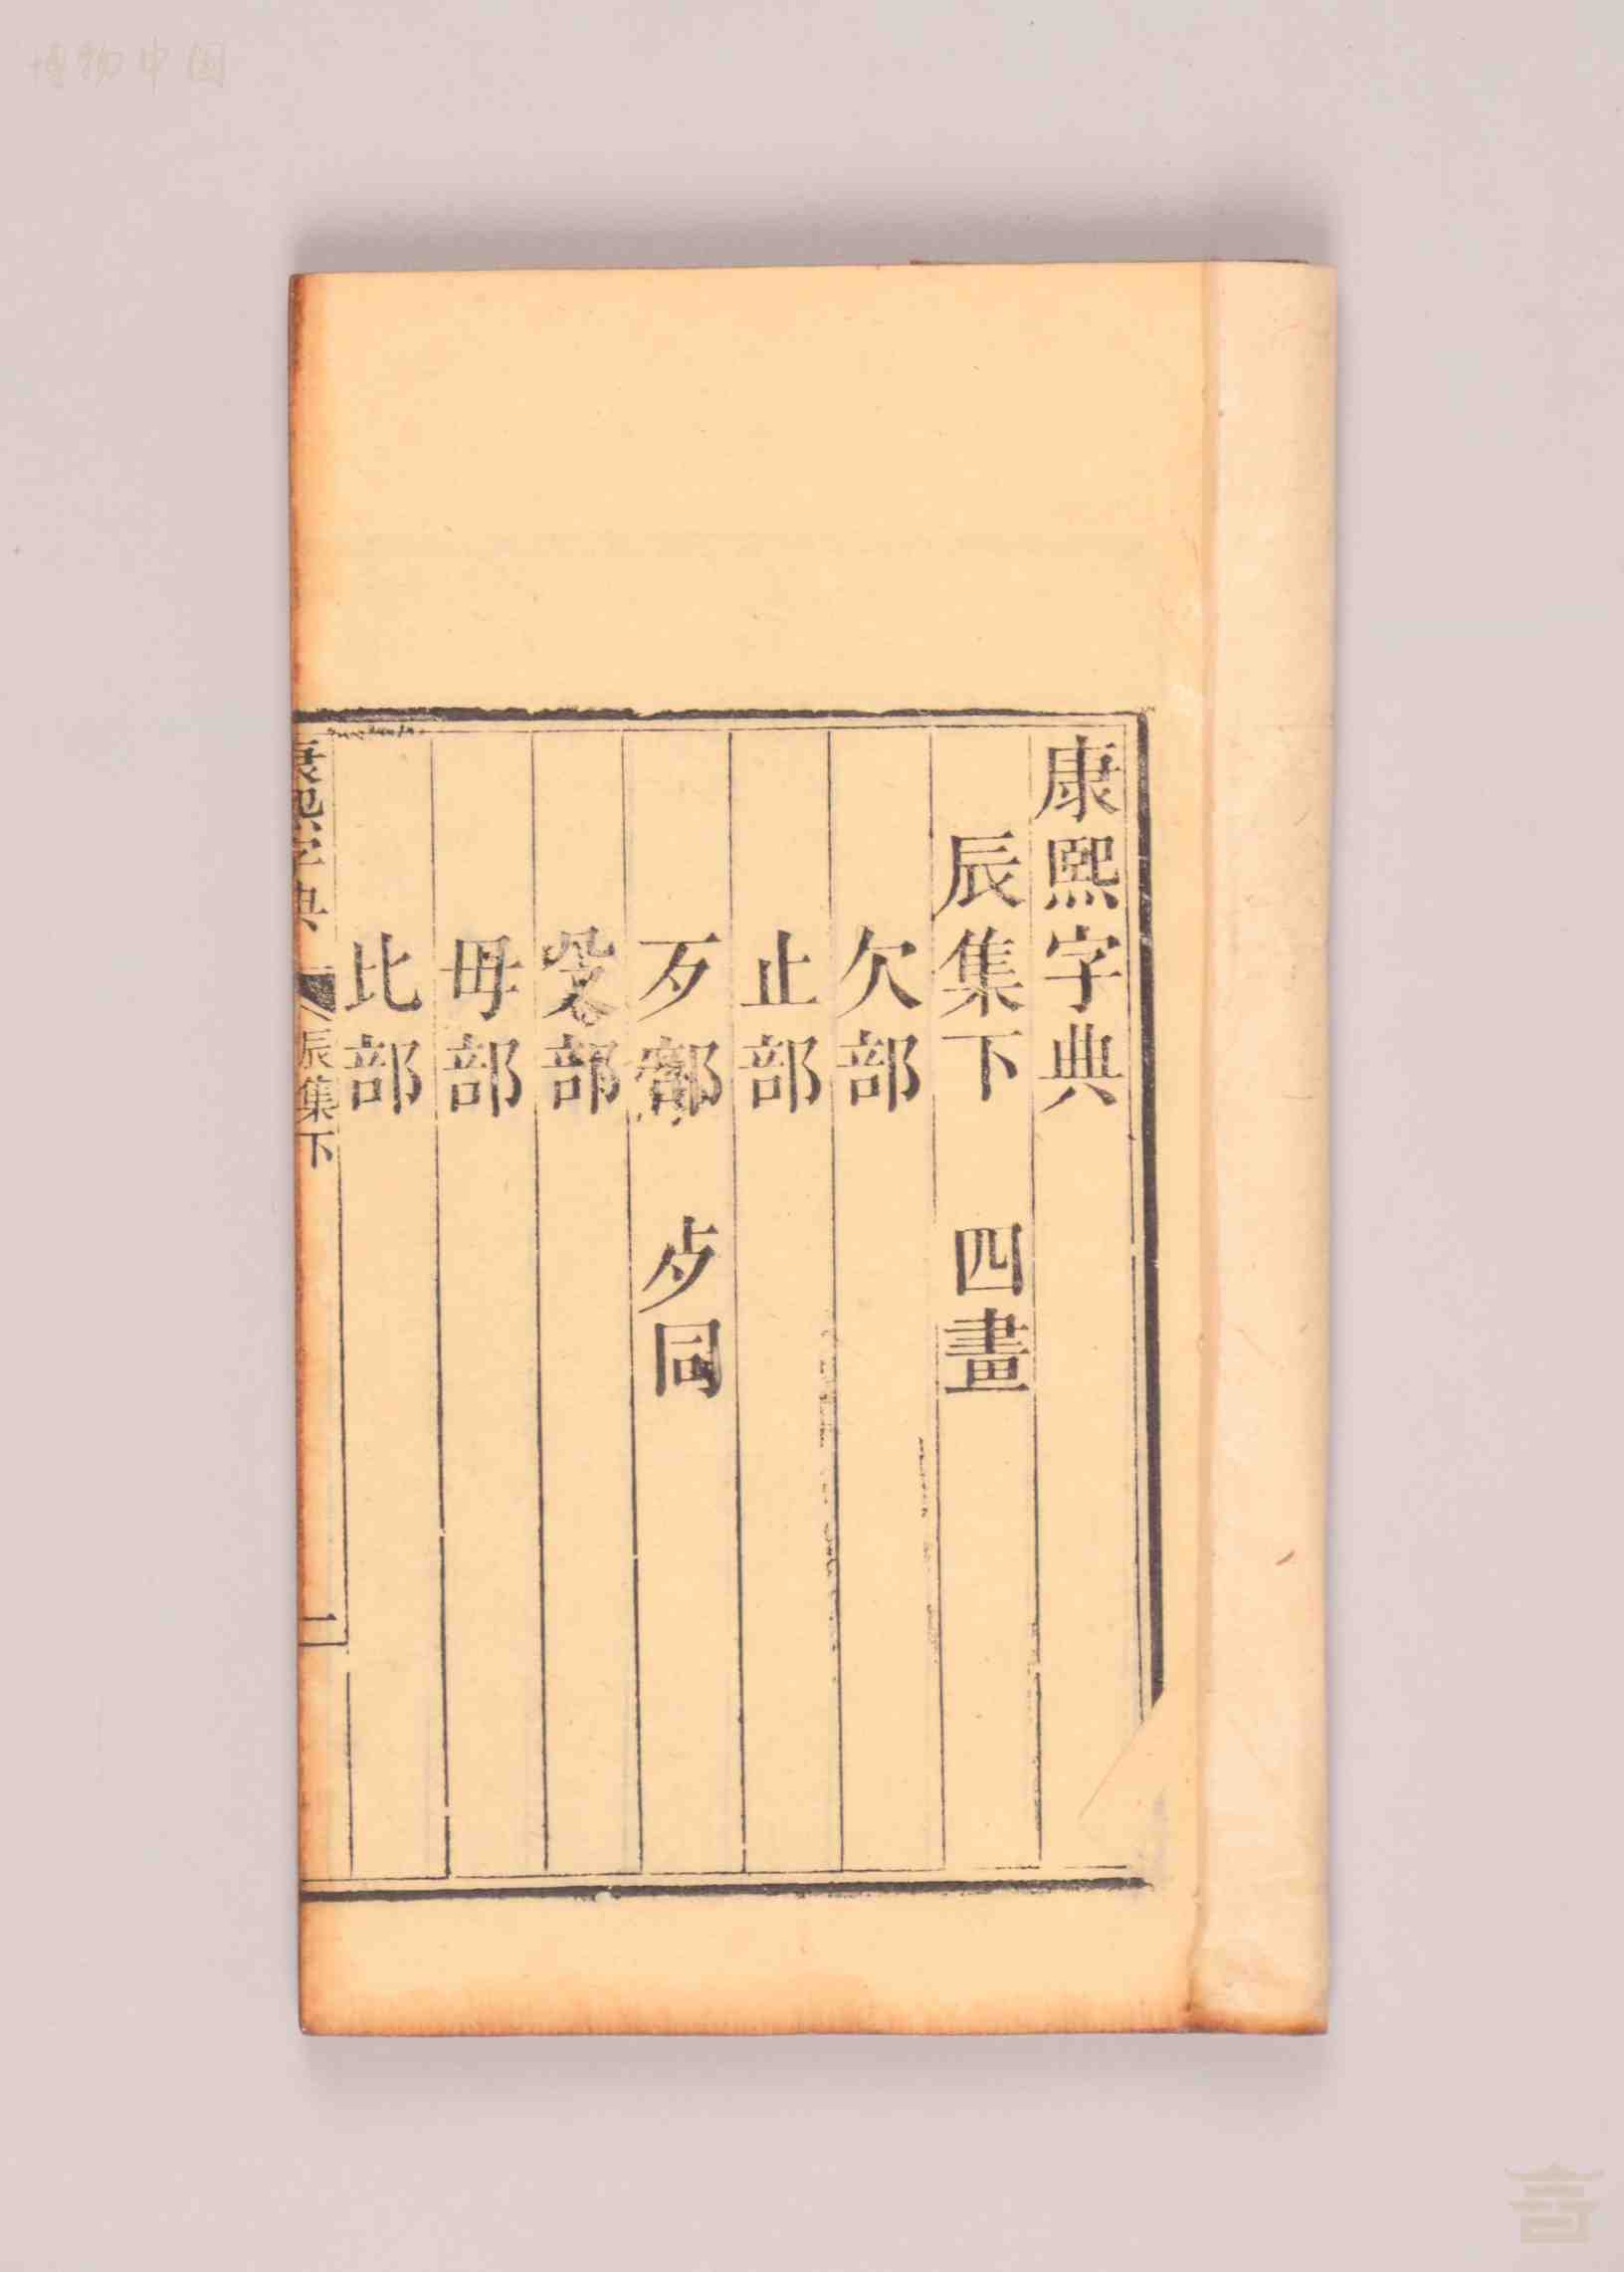 康熙字典
辰集下　四畫
欠部
止部
歹部　歺同
殳部
毋部
比部
康熙字典
辰集下
一
博物中国